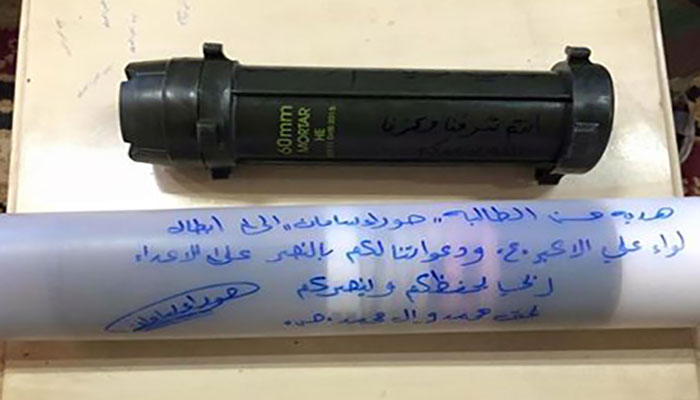 60mm
MORTAR
HE
انتم شرفنا وعزنا
هدية من الطالبة ,, حوراء سامان ,, الى ابطال
لواء علي الاكبر .ع. ودعواتنا لكم بالنصر على الاعداء
يحفظكم وينصركم
بحق محمد وال محمد
حوراء سامان